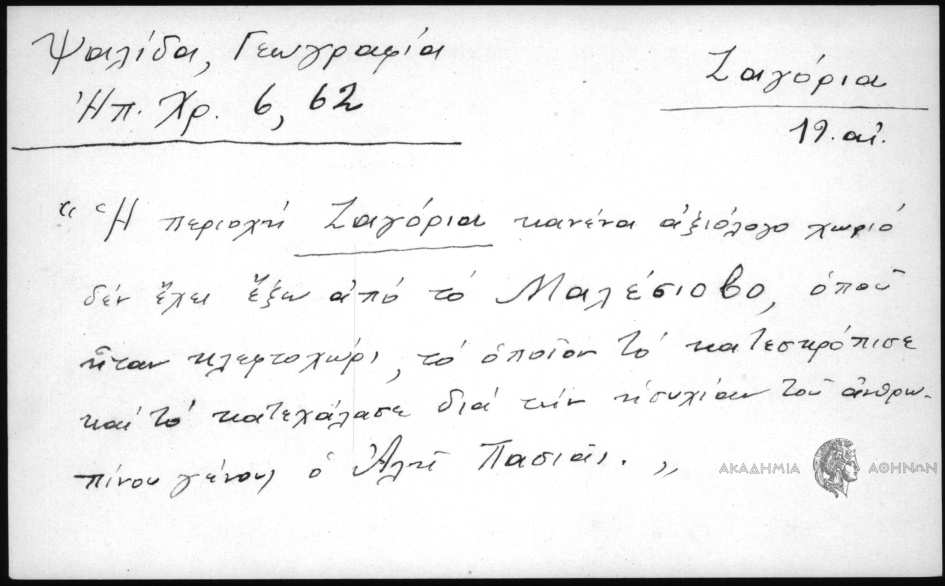 Ψαλίδα, Γεωγραφία
Ἠπ. Χρ. 6, 62
Ζαγόρια
19. αἰ.
"Ἡ περιοχή Ζαγόρια κανένα ἀξιόλογο χωριό
δέν ἔχει ἔξω ἀπό τό Μαλέσιοβο, ὁποῦ
ἦταν κλεφτοχώρι, τό ὁποῖον τό κατεσκρόπισε
καί τό κατεχάλασε διά τήν ἡσυχίαν τοῦ ἀνθρω-
πίνου γένους ὁ Ἀλῆ Πασιᾶς. „
ΑΚΑΔΗΜΙΑ ΑΘΗΝΩΝ